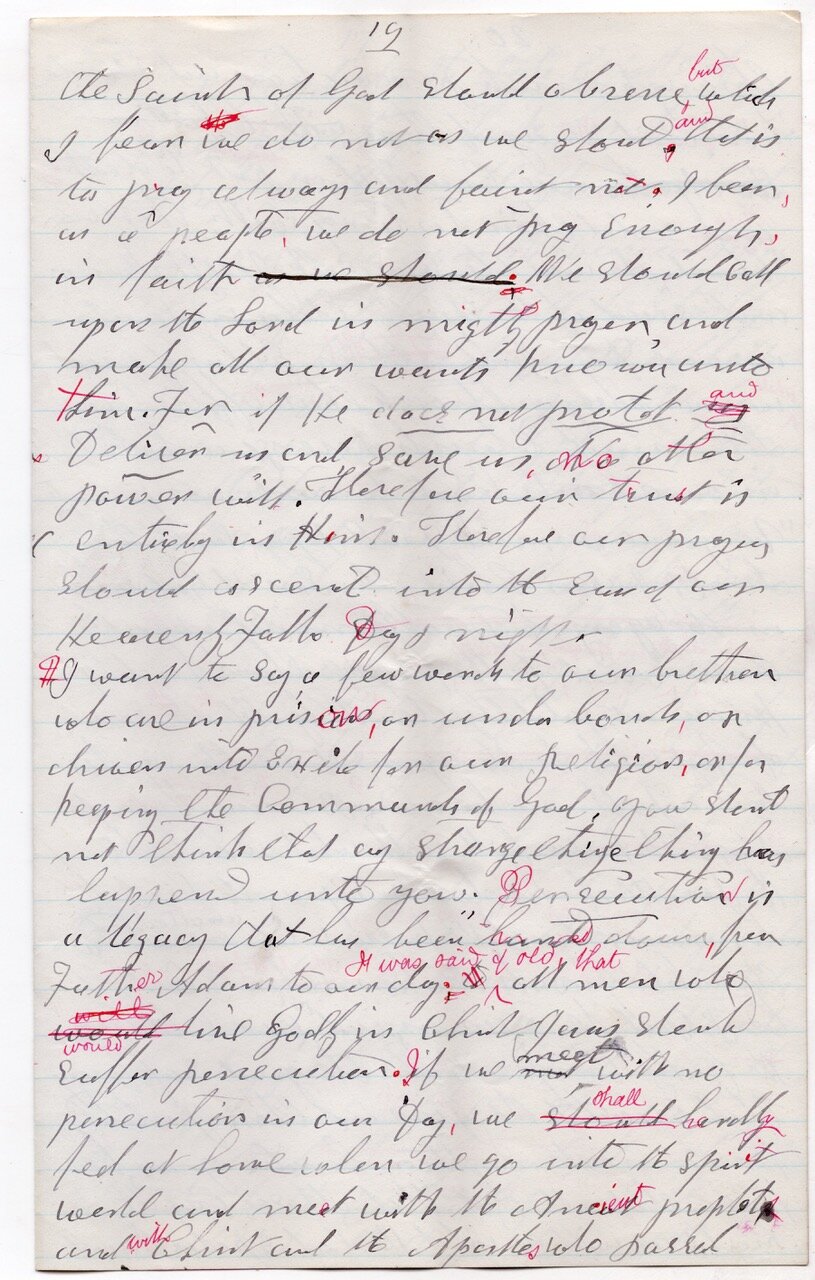 19
the Saints of God should observe, but which
I fear we do not as we should, and that is
to pray always and faint not. I fear,
as a people, we do not pray Enough,
in faith as we should. We should Call
upon the Lord in mighty prayer, and
make all our wants known unto
Him. For if He does not protect and
Deliver us and Save us, no other
power will. Therefore our trust is
entirely in Him. Therefore our prayers
should ascend into the Ears of our
Heavenly Father Day & night.
I want to say a few words to our brethren
who are in prison, or under bonds, or
driven into Exile for our Religion, or for
keeping the Commands of God, you should
not think that any strange thing has
happened unto you. Persecution is
a legacy that has been handed down, from
Father Adam to our day. It was said of old, that all men who
would will would live Godly in Christ Jesus should
Suffer persecution. If we meet with no
persecution in our Day, we should shall hardly
feel at home when we go into the spirit
world and meet with the Ancient prophets
and with Christ and the Apostles who passed